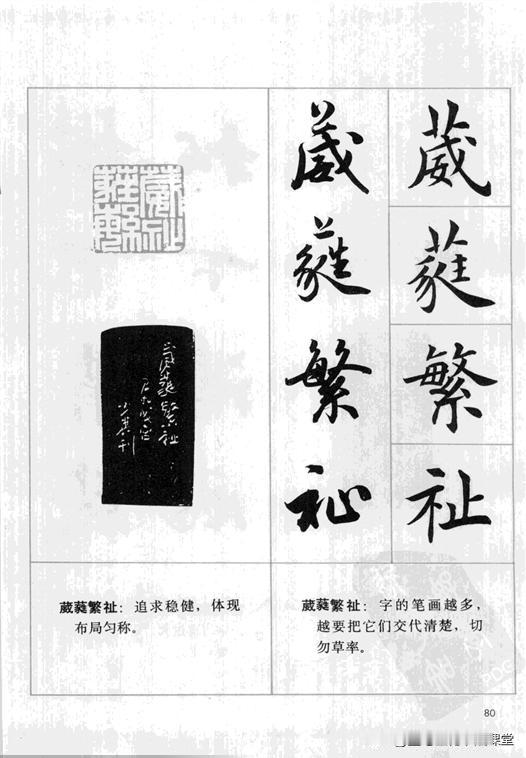 葳蕤繁祉
葳蕤繁祉
葳蕤繁祉
葳蕤繁祉
葳蕤繁祉：追求稳健，体现
布局匀称。
葳蕤繁祉：字的笔画越多，
越要把它们交代清楚，切
勿草率。
80
课堂